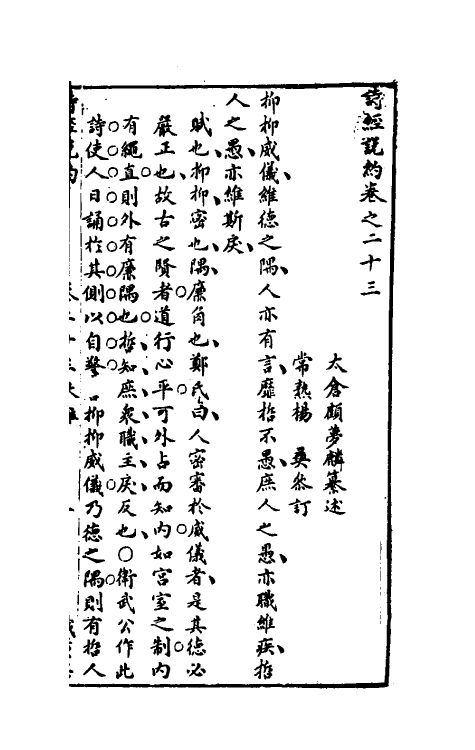 詩經說約卷之二十三
太倉顧夢麟纂述
常熟楊　彝叅訂
抑抑威儀維德之隅人亦有言靡哲不愚庶人之愚亦職維疾哲
人之愚亦維斯戾
賦也抑抑密也隅廉角也鄭氏曰人密審於威儀者是其德必
嚴正也故古之賢者道行心平可外占而知內如宮室之制內
有繩直則外有廉隅也哲知庶衆職主戾反也○衛武公作此
詩使人日誦於其側以自警○抑抑威儀乃德之隅則有哲人